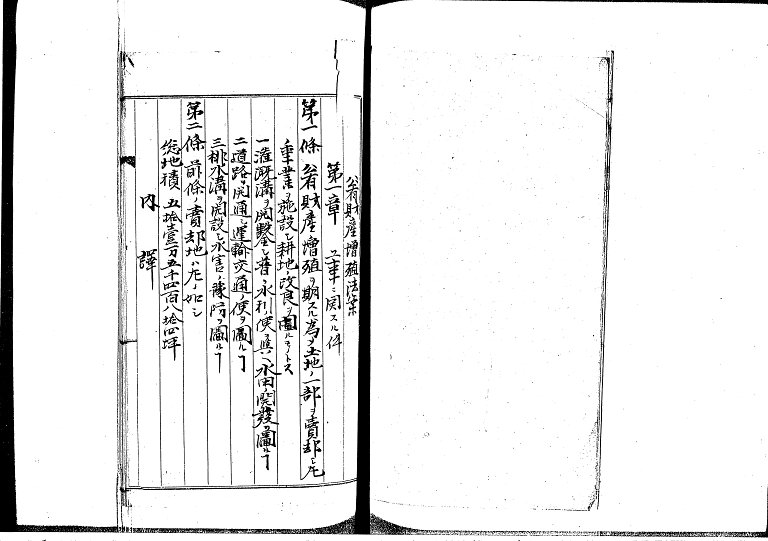 公有財産増殖法案
第一章 工事ニ関スル件
第一條 公有財産増殖ヲ期スル為メ土地ノ一部ヲ賣却シ左ノ
事業ヲ施設シ耕地ノ改良ヲ圖ルモノトス
一 灌漑溝ヲ開鑿シ 永利便 水田ノ開發ヲ圖ルヿ
二 道路ヲ開通シ運輸交通ノ便ヲ圖ルヿ
三 排水溝ヲ開設シ水害ノ豫防ヲ圖ルヿ
第二條 前條ノ賣却地ハ左ノ如シ
総地積 五拾壹万五千四百八拾四坪
内譯